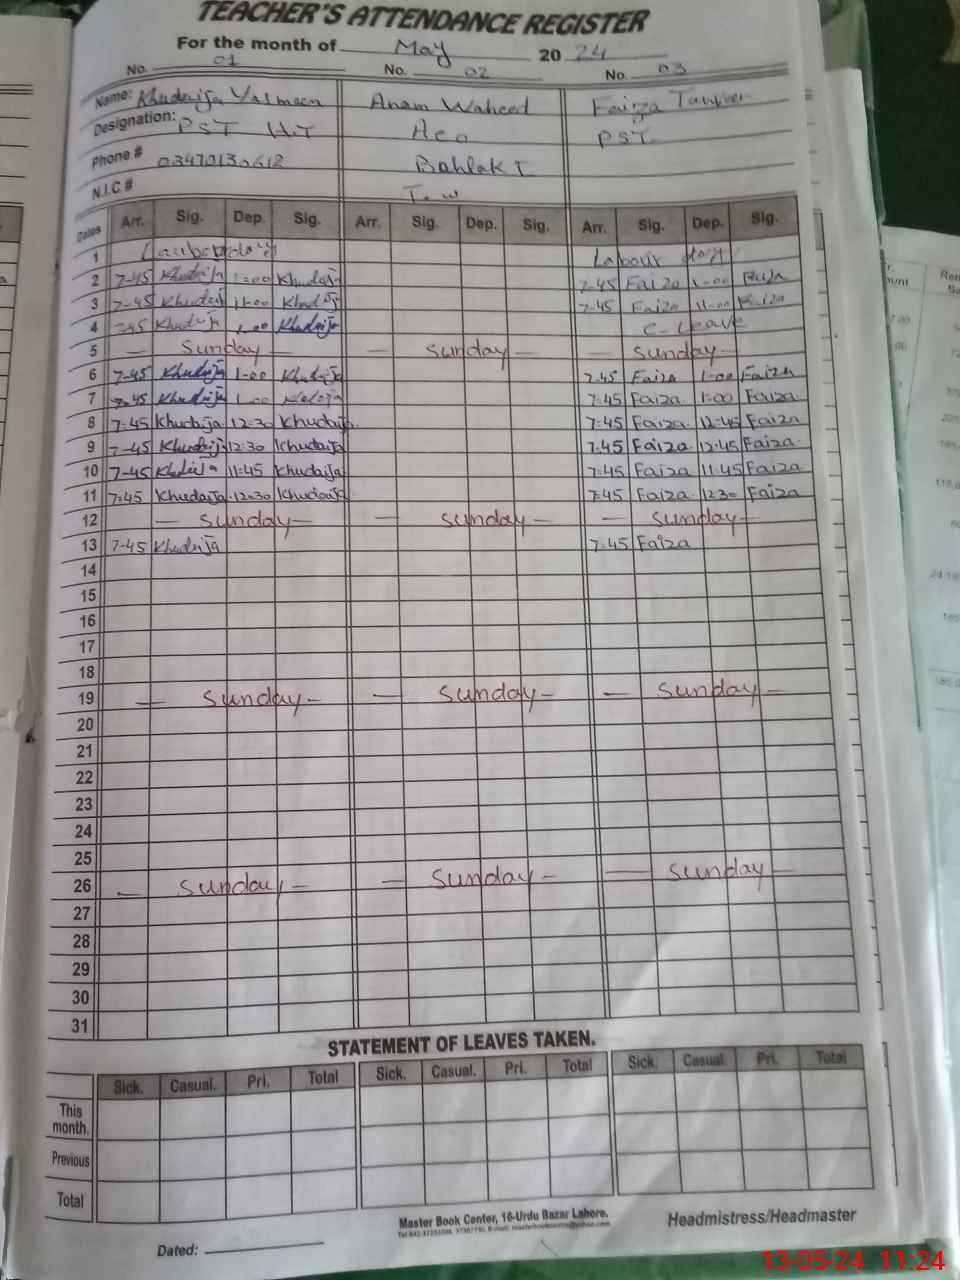 TEACHER'S ATTENDANCE REGISTER
For the month of May 2024
No. 01 No. 02 No. 03
Name: Khudaija Yasmeen Anam Waheed Faiza Tanveer
Designation: PST H.T Aeo PST
Phone # 03470130612 Bahlak I
N.I.C #
Dates Arr. Sig. Dep. Sig. Arr. Sig. Dep. Sig. Arr. Sig. Dep. Sig.
1 Labour day
2 7-45 Khudaija 1-00 Khudaija 7-45 Faiza 1-00 Faiza
3 7-45 Khudaija 11-00 Khudaija 7-45 Faiza 11-00 Faiza
4 7-45 Khudaija 1-00 Khudaija C-Leave
5 — Sunday — — Sunday — — Sunday —
6 7-45 Khudaija 1-00 Khudaija 7-45 Faiza 1-00 Faiza
7 7-45 Khudaija 1-00 7-45 Faiza 1-00 Faiza
8 7-45 Khudaija 12-30 Khudaija 7-45 Faiza 12-45 Faiza
9 7-45 Khudaija 12:30 Khudaija 7-45 Faiza 12-45 Faiza
10 7-45 Khudaija 11-45 Khudaija 7-45 Faiza 11-45 Faiza
11 7-45 Khudaija 12-30 Khudaija 7-45 Faiza 12-30 Faiza
12 — Sunday — — Sunday — — Sunday —
13 7-45 Khudaija 7-45 Faiza
14
15
16
17
18
19 — Sunday — — Sunday — — Sunday —
20
21
22
23
24
25
26 — Sunday — — Sunday — — Sunday —
27
28
29
30
31
STATEMENT OF LEAVES TAKEN.
Sick. Casual. Pri. Total Sick. Casual. Pri. Total Sick. Casual Pri. Total
This month.
Previous
Total
Master Book Center, 16-Urdu Bazar Lahore.
Headmistress/Headmaster
Dated:
13-05-24 11:24